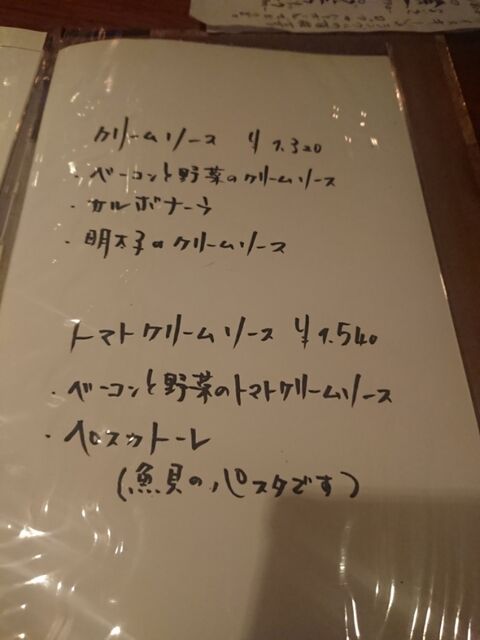 クリームソース ¥1.320
・ベーコンと野菜のクリームソース
・カルボナーラ
・明太子のクリームソース
トマトクリームソース ¥1.540
・ベーコンと野菜のトマトクリームソース
・ペスカトーレ
(魚貝のパスタです)